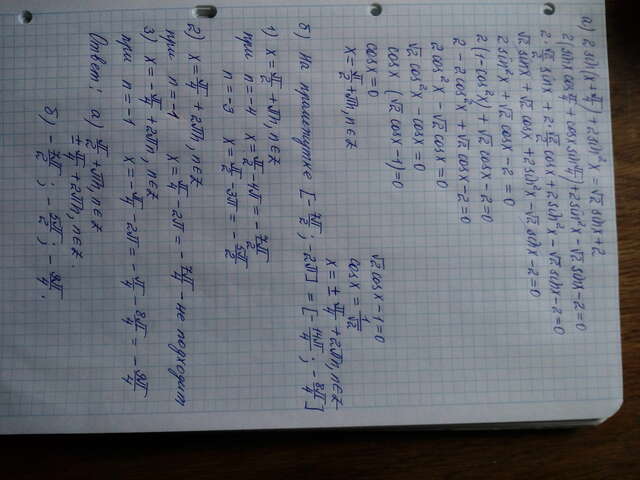 а) 2 sin(x + π/4) + 2 sin²x = √2 sinx + 2
2(sinx cos π/4 + cosx sin π/4) + 2 sin²x - √2 sinx - 2 = 0
2·√2/2 sinx + 2·√2/2 cosx + 2 sin²x - √2 sinx - 2 = 0
√2 sinx + √2 cosx + 2 sin²x - √2 sinx - 2 = 0
2 sin²x + √2 cosx - 2 = 0
2(1 - cos²x) + √2 cosx - 2 = 0
2 - 2cos²x + √2 cosx - 2 = 0
2cos²x - √2 cosx = 0
√2 cos²x - cosx = 0
cosx (√2 cosx - 1) = 0
cosx = 0 √2 cosx - 1 = 0
x = π/2 + πn, n∈z cosx = 1/√2
x = ± π/4 + 2πn, n∈z
б) На промежутке [-7π/2; -2π] = [-14π/4; -8π/4]
1) x = π/2 + πn, n∈z
при n = -4 x = π/2 - 4π = -7π/2
n = -3 x = π/2 - 3π = -5π/2
2) x = π/4 + 2πn, n∈z
при n = -1 x = π/4 - 2π = -7π/4 - не подходит
3) x = -π/4 + 2πn, n∈z
при n = -1 x = -π/4 - 2π = -π/4 - 8π/4 = -9π/4
Ответ: а) π/2 + πn, n∈z
± π/4 + 2πn, n∈z.
б) -7π/2; -5π/2; -9π/4.